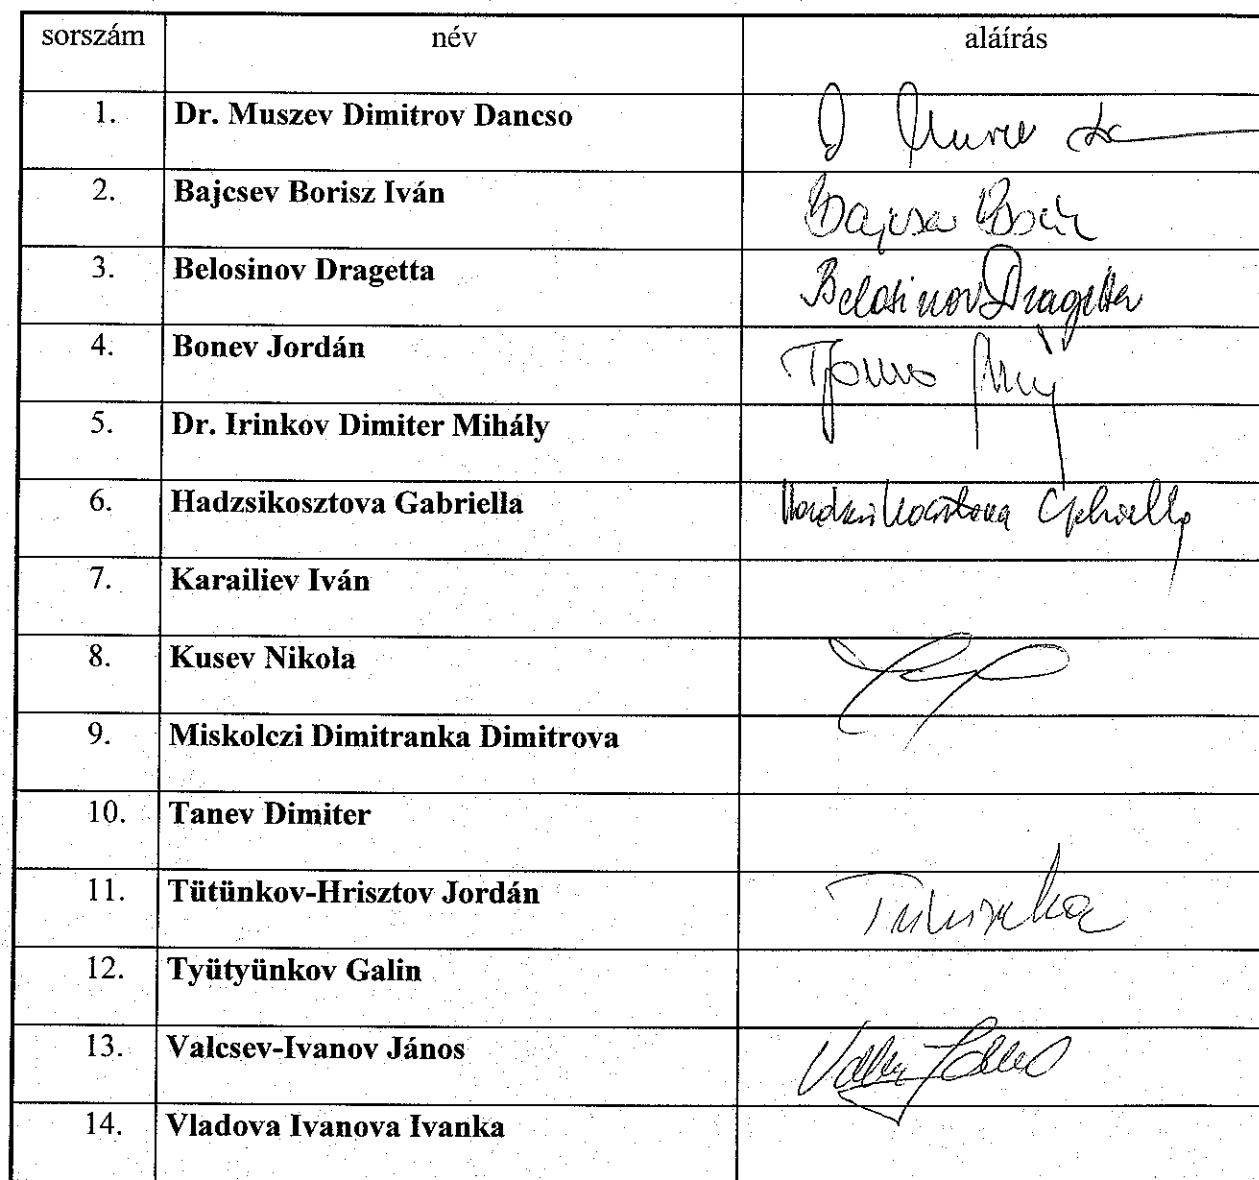 sorszám név aláírás
1. Dr. Muszev Dimitrov Dancso
2. Bajcsev Borisz Iván
3. Belosinov Dragetta Belosinov Dragetta
4. Bonev Jordán
5. Dr. Irinkov Dimiter Mihály
6. Hadzsikosztova Gabriella Hadzsikosztova Gabriella
7. Karailiev Iván
8. Kusev Nikola
9. Miskolczi Dimitranka Dimitrova
10. Tanev Dimiter
11. Tütünkov-Hrisztov Jordán
12. Tyütyünkov Galin
13. Valcsev-Ivanov János
14. Vladova Ivanova Ivanka